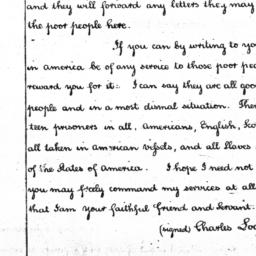 and they will forward any letters they may
the poor people here.
If you can by writing to yo
in america be of any service to those poor peo
reward you for it: I can say they are all goo
people and in a most dismal situation. Ther
teen prisoners in all, Americans, English, Sco
all taken in amrican vessels, and all slaves
of the States of america. I hope I need not
you may freely command my services at all
that I am your faithful friend and servant.
(signed) Charles Lo